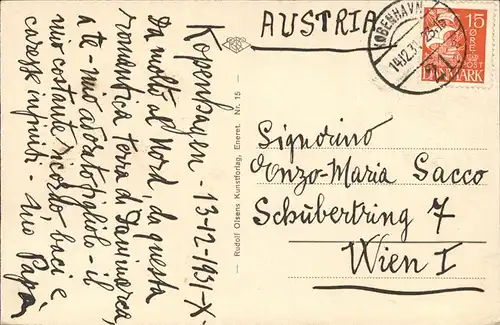 Kopenhagen - 13-12-1931-X-
Da molto al Nord, da questa
romantica terra di Danimarca,
a te - mio adorato figliolo - il
mio costante ricordo, baci e
carezze infiniti - Tuo Papà
Rudolf Olsens Kunstforlag, Eneret. Nr. 15
AUSTRIA
KØBENHAVN
14.12.31
15
ØRE
POST
DANMARK
Signorino
Enzo-Maria Sacco
Schubertring 7
Wien I